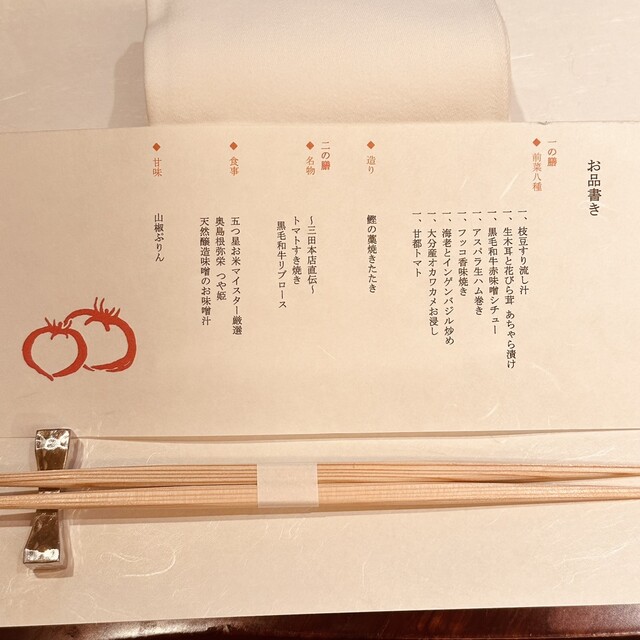 お品書き
一の膳
◆前菜八種
一、枝豆すり流し汁
一、生木耳と花びら茸 あちゃら漬け
一、黒毛和牛赤味噌シチュー
一、アスパラ生ハム巻き
一、フッコ香味焼き
一、海老とインゲンバジル炒め
一、大分産オカワカメお浸し
一、甘都トマト
◆造り
鰹の藁焼きたたき
二の膳
◆名物
〜三田本店直伝〜
トマトすき焼き
黒毛和牛リブロース
◆食事
五つ星お米マイスター厳選
奥島根弥栄 つや姫
天然醸造味噌のお味噌汁
◆甘味
山椒ぷりん